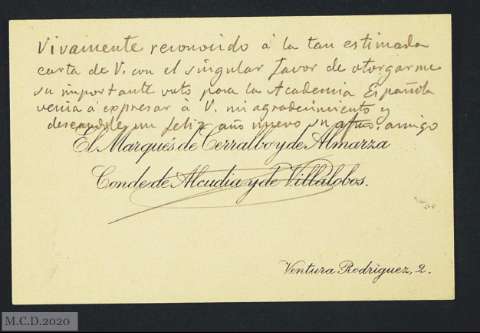 Vivamente reconocido á la tan estimada
carta de V. con el singular favor de otorgarme
su importante voto para la Academia Española
venia á expresar á V. mi agradecimiento y
desearle un feliz año nuevo su afmo. amigo
El Marqués de Cerralbo y de Almarza
Conde de Alcudia y de Villalobos.
Ventura Rodriguez, 2.
M.C.D.2020